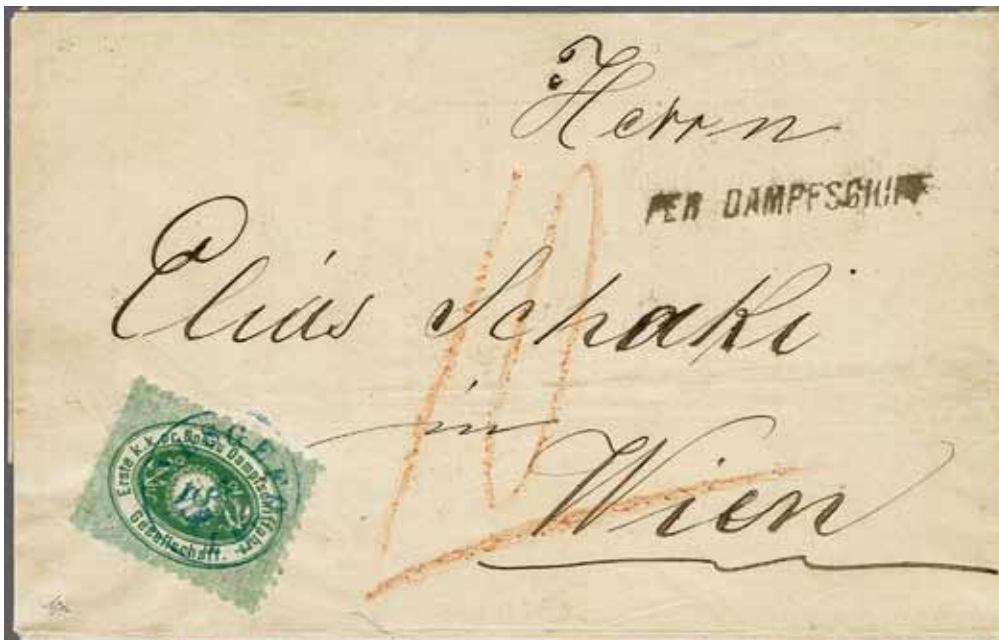 Herrn
PER DAMPFSCHIFF
Eliás Schaki
in
Wien
10
Erste k.k. pr. Donau Dampfschiffahrt-
Gesellschaft.